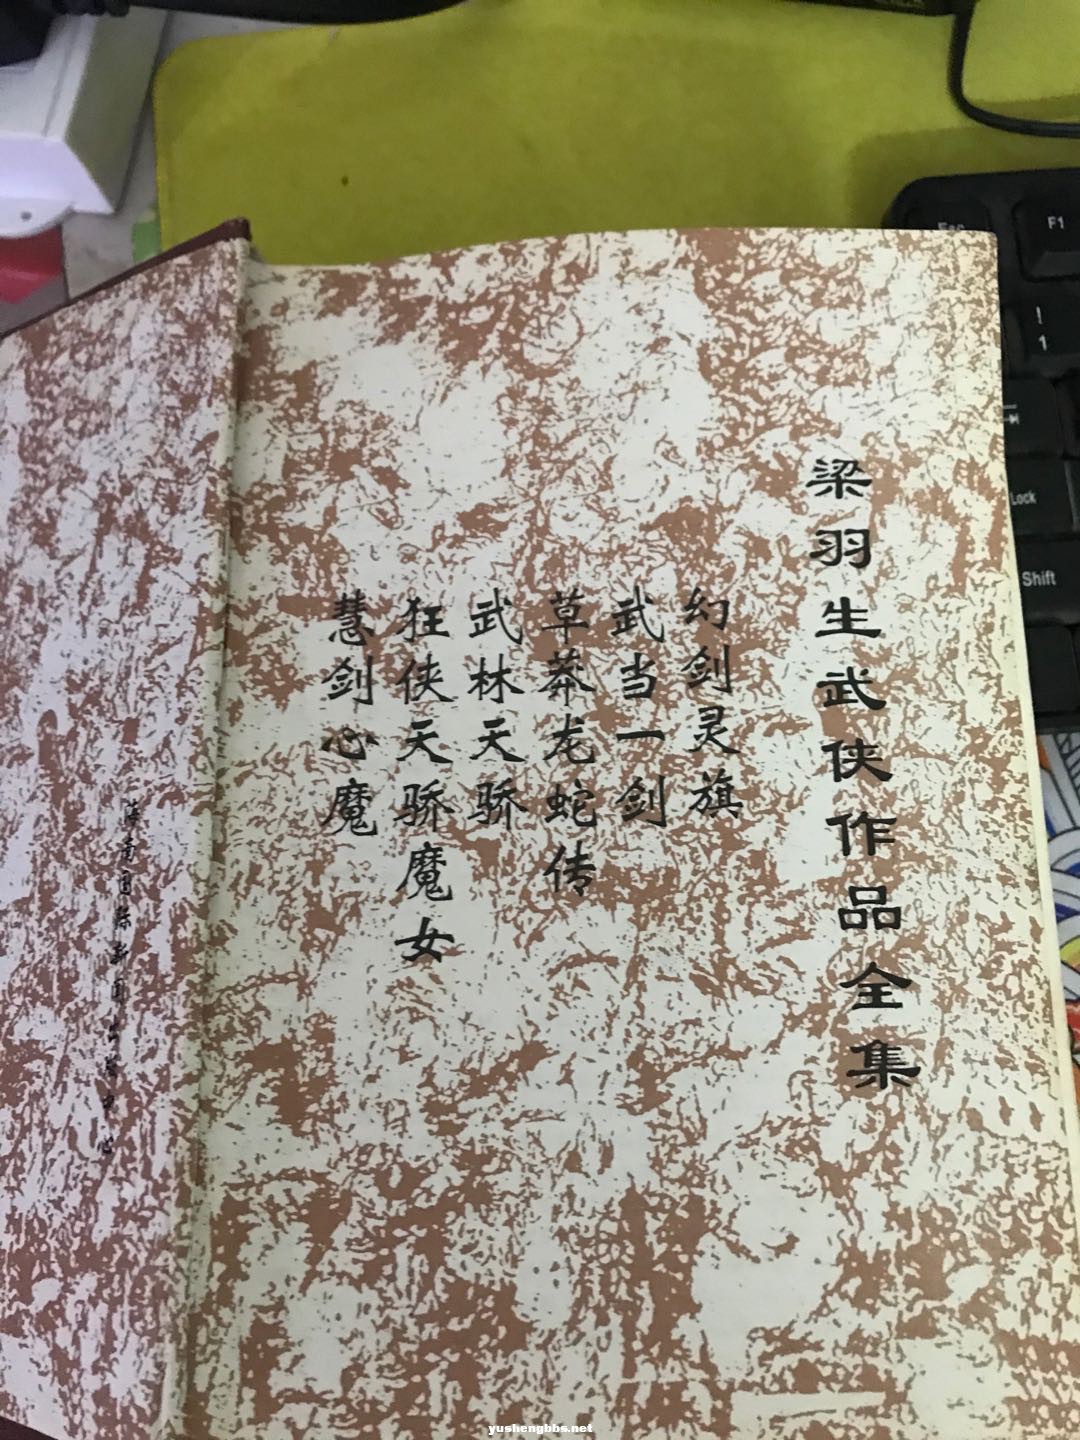 梁羽生武侠作品全集
幻剑灵旗
武当一剑
草莽龙蛇传
武林天骄
狂侠天骄魔女
慧剑心魔
海南国际新闻出版中心
F1
!
1
Lock
Shift
yushengbbs.net